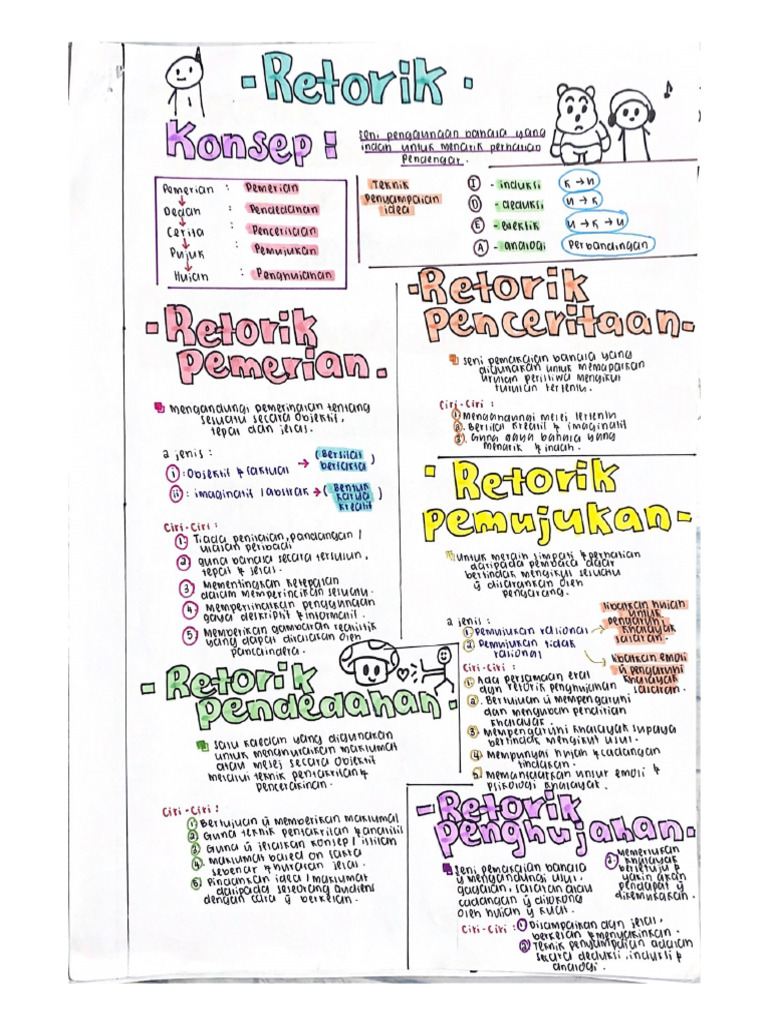 - Retorik -
Konsep :
seni penggunaan bahasa yang
indah untuk menarik perhatian
pendengar.
Pemerian : Pemerian
Dedah : Pendedahan
Cerita : Penceritaan
Pujuk : Pemujukan
Hujah : Penghujahan
Teknik
Penyampaian
idea
I - induksi K → U
D - deduksi U → K
E - eklektik U → K → U
A - analogi Perbandingan
- Retorik
Pemerian -
mengandungi pemerihalan tentang
sesuatu secara objektif,
tepat dan jelas.
2 jenis :
i : Objektif & faktual → (Bersifat
berfakta)
ii : imaginatif / abstrak → (Bentuk
karya
kreatif)
Ciri-Ciri :
1. Tiada penilaian, pandangan /
ulasan peribadi
2. guna bahasa secara tersusun,
tepat & jelas.
3. Mementingkan ketepatan
dalam memperincikan sesuatu.
4. Memperincikan penggunaan
gaya deskriptif & informatif.
5. Memberikan gambaran realistik
yang dapat dirasakan oleh
pancaindera.
- Retorik
Penceritaan -
seni pemakaian bahasa yang
digunakan untuk memaparkan
urutan peristiwa mengikut
turutan tertentu.
Ciri-Ciri :
1. Mengandungi mesej tertentu
2. Bersifat kreatif & imaginatif
3. Guna gaya bahasa yang
menarik & indah.
- Retorik
Pemujukan -
untuk meraih simpati & perhatian
daripada pembaca agar
bertindak mengikut sesuatu
y disarankan oleh
pengarang.
2 jenis :
1. Pemujukan rasional
2. Pemujukan tidak
rasional
libatkan hujah
untuk
pengaruhi
khalayak
sasaran.
libatkan emosi
y pengaruhi
khalayak
sasaran.
Ciri-Ciri :
1. Ada persamaan erat
dgn retorik penghujahan
2. Bertujuan y mempengaruhi
dan mengubah pendirian
khalayak
3. Mempengaruhi khalayak supaya
bertindak mengikut usul.
4. Mempunyai hujah & cadangan
tindakan.
5. Memanfaatkan unsur emosi &
psikologi khalayak.
- Retorik
Pendedahan -
satu kaedah yang digunakan
untuk menghuraikan maklumat
atau mesej secara objektif
melalui teknik pentakrifan &
pencerakinan.
Ciri-Ciri :
1. Bertujuan y memberikan maklumat
2. Guna teknik pentakrifan & analisis
3. Guna y jelaskan konsep / istilah
4. Maklumat based on fakta
sebenar & huraian jelas.
5. Pindahkan idea / maklumat
daripada seseorang audiens
dengan cara y berkesan.
- Retorik
Penghujahan -
seni pemakaian bahasa
y mengandungi usul,
gagasan, saranan atau
cadangan y disokong
oleh hujah y kuat.
Ciri-Ciri : 1 Disampaikan dgn jelas,
berkesan & menyakinkan.
2 Teknik penyampaian adalah
secara deduksi, induksi &
analogi.
3. Memerlukan
khalayak
bersetuju &
yakin akan
pendapat y
dikemukakan.